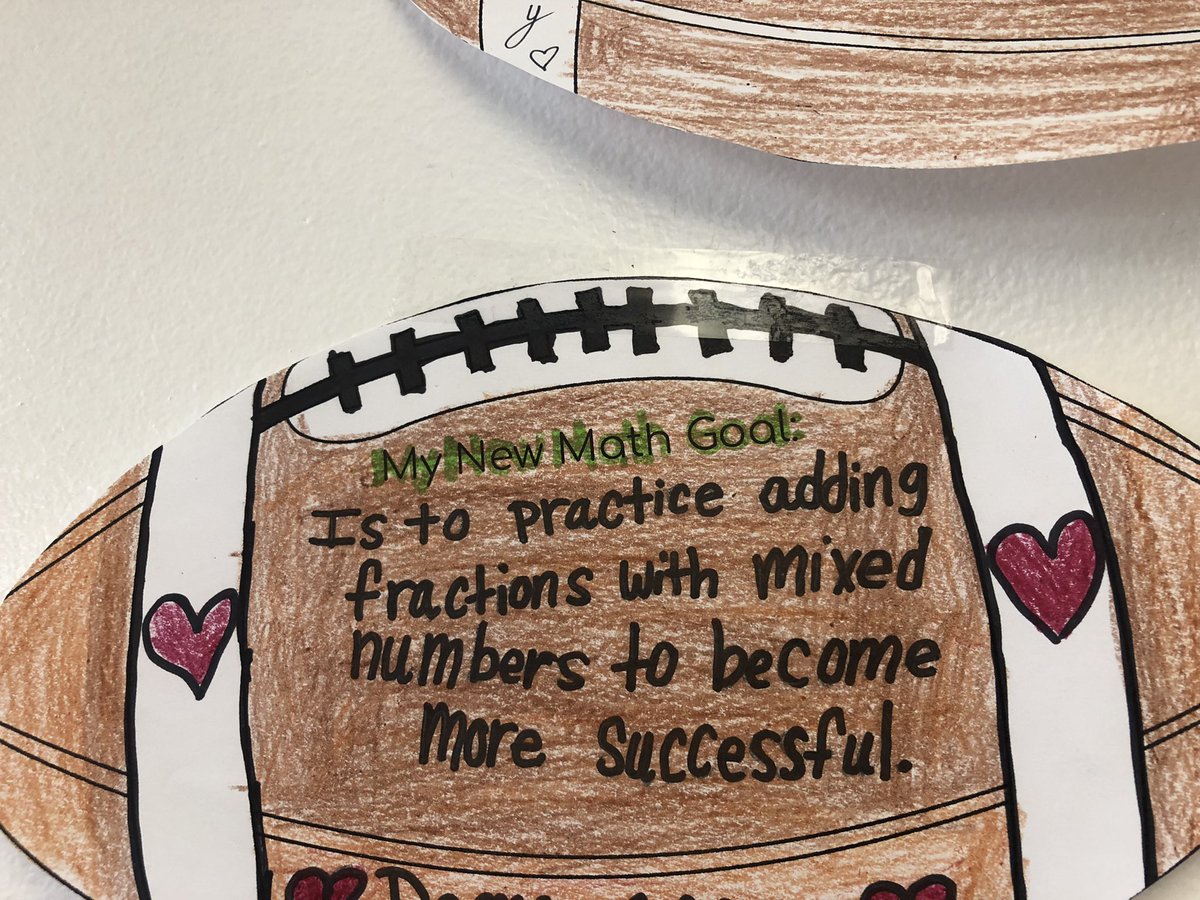 y
My New Math Goal:
Is to practice adding
fractions with mixed
numbers to become
more successful.